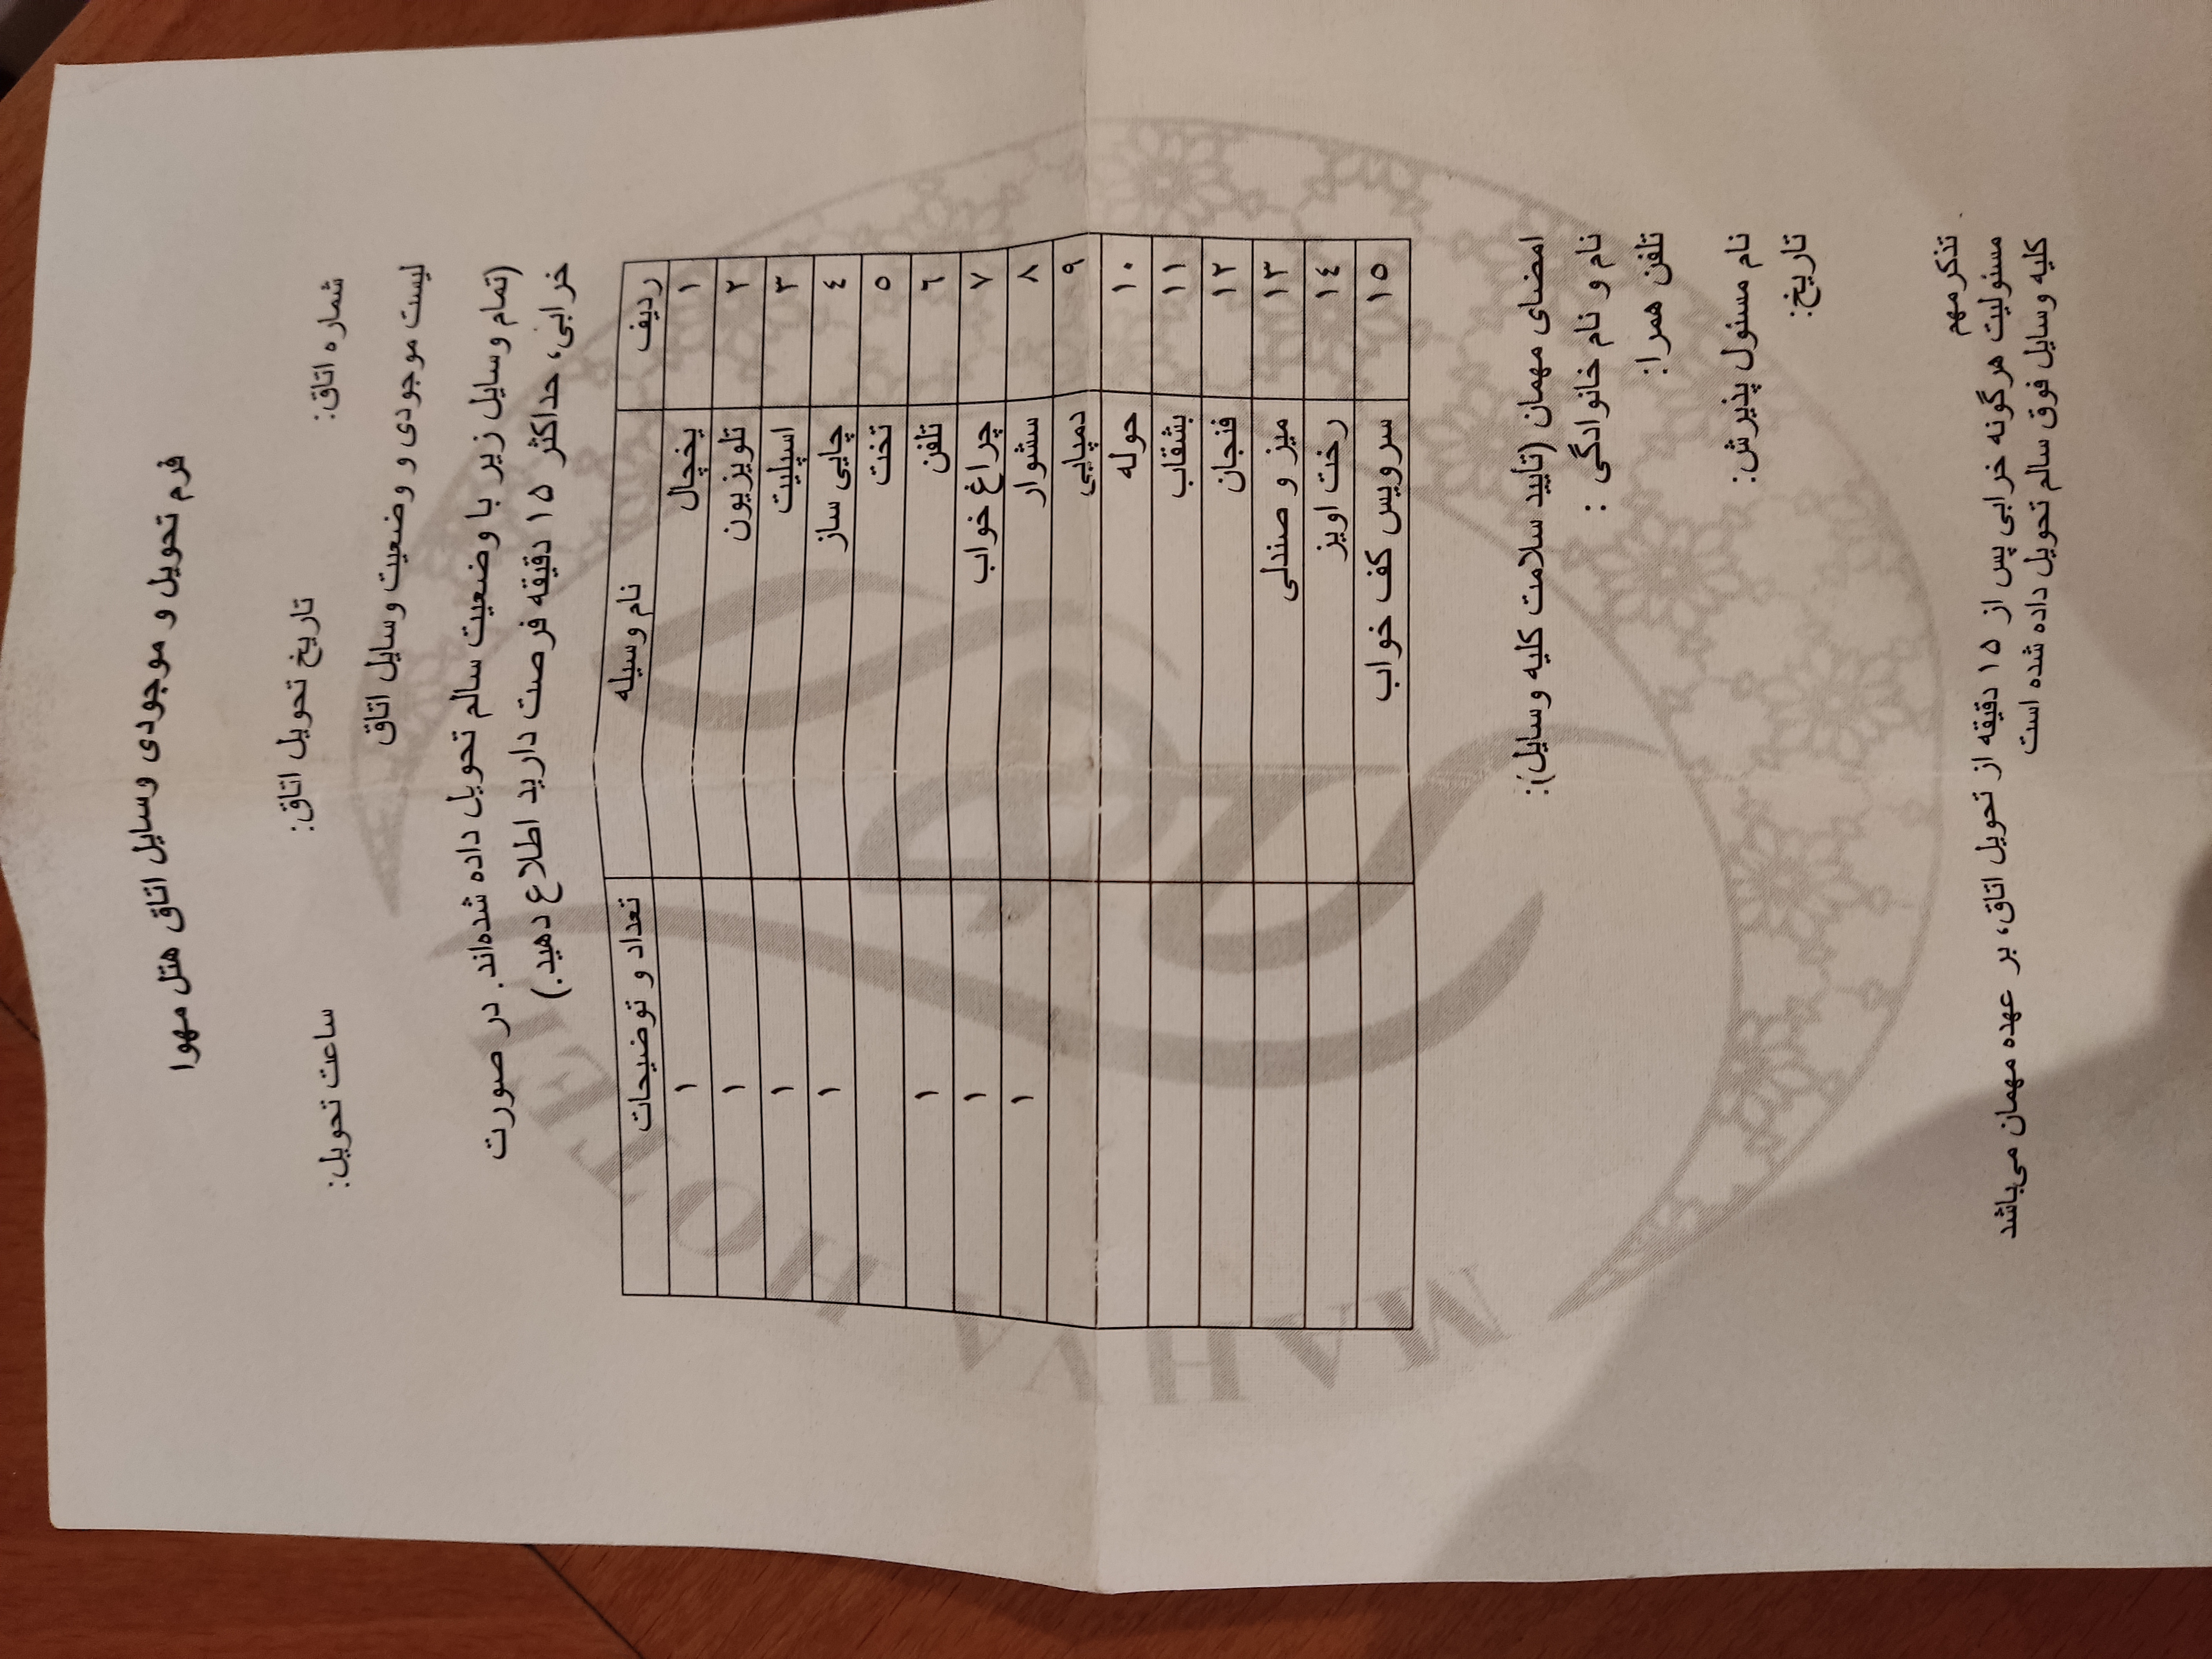 فرم تحویل و موجودی وسایل اتاق هتل مهوا
شماره اتاق: تاریخ تحویل اتاق: ساعت تحویل:
لیست موجودی و وضعیت وسایل اتاق
(تمام وسایل زیر با وضعیت سالم تحویل داده شده‌اند. در صورت
خرابی، حداکثر ۱۵ دقیقه فرصت دارید اطلاع دهید.)
ردیف نام وسیله تعداد و توضیحات
۱ یخچال ۱
۲ تلویزیون ۱
۳ اسپلیت ۱
٤ چایی ساز ۱
٥ تخت
٦ تلفن ۱
۷ چراغ خواب ۱
۸ سشوار ۱
۹ دمپایی
۱۰ حوله
۱۱ بشقاب
۱۲ فنجان
۱۳ میز و صندلی
۱٤ رخت اویز
۱٥ سرویس کف خواب
امضای مهمان (تأیید سلامت کلیه وسایل):
نام و نام خانوادگی :
تلفن همرا:
نام مسئول پذیرش:
تاریخ:
تذکر مهم
مسئولیت هرگونه خرابی پس از ۱۵ دقیقه از تحویل اتاق، بر عهده مهمان می‌باشد
کلیه وسایل فوق سالم تحویل داده شده است
MAHVA HOTEL